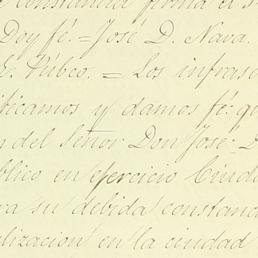 constancia firma el s
Doy fé.=José D. Nava.
E. Pubco. = Los infrasc
ificamos y damos fé: qu
n del Señor Don José: D
blico en ejercicio Ciud
ra su debida constanc
alizacion en la ciudad